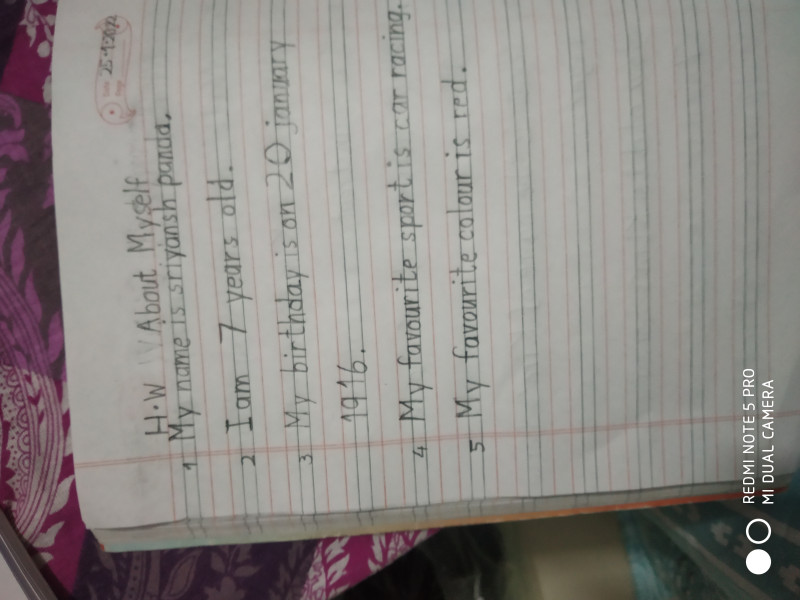 Date 25-1-2022
Page
H.W About Myself
1 My name is sriyansh panda.
2 I am 7 years old.
3 My birthday is on 20 january
1916.
4 My favourite sport is car racing.
5 My favourite colour is red.
REDMI NOTE 5 PRO
MI DUAL CAMERA